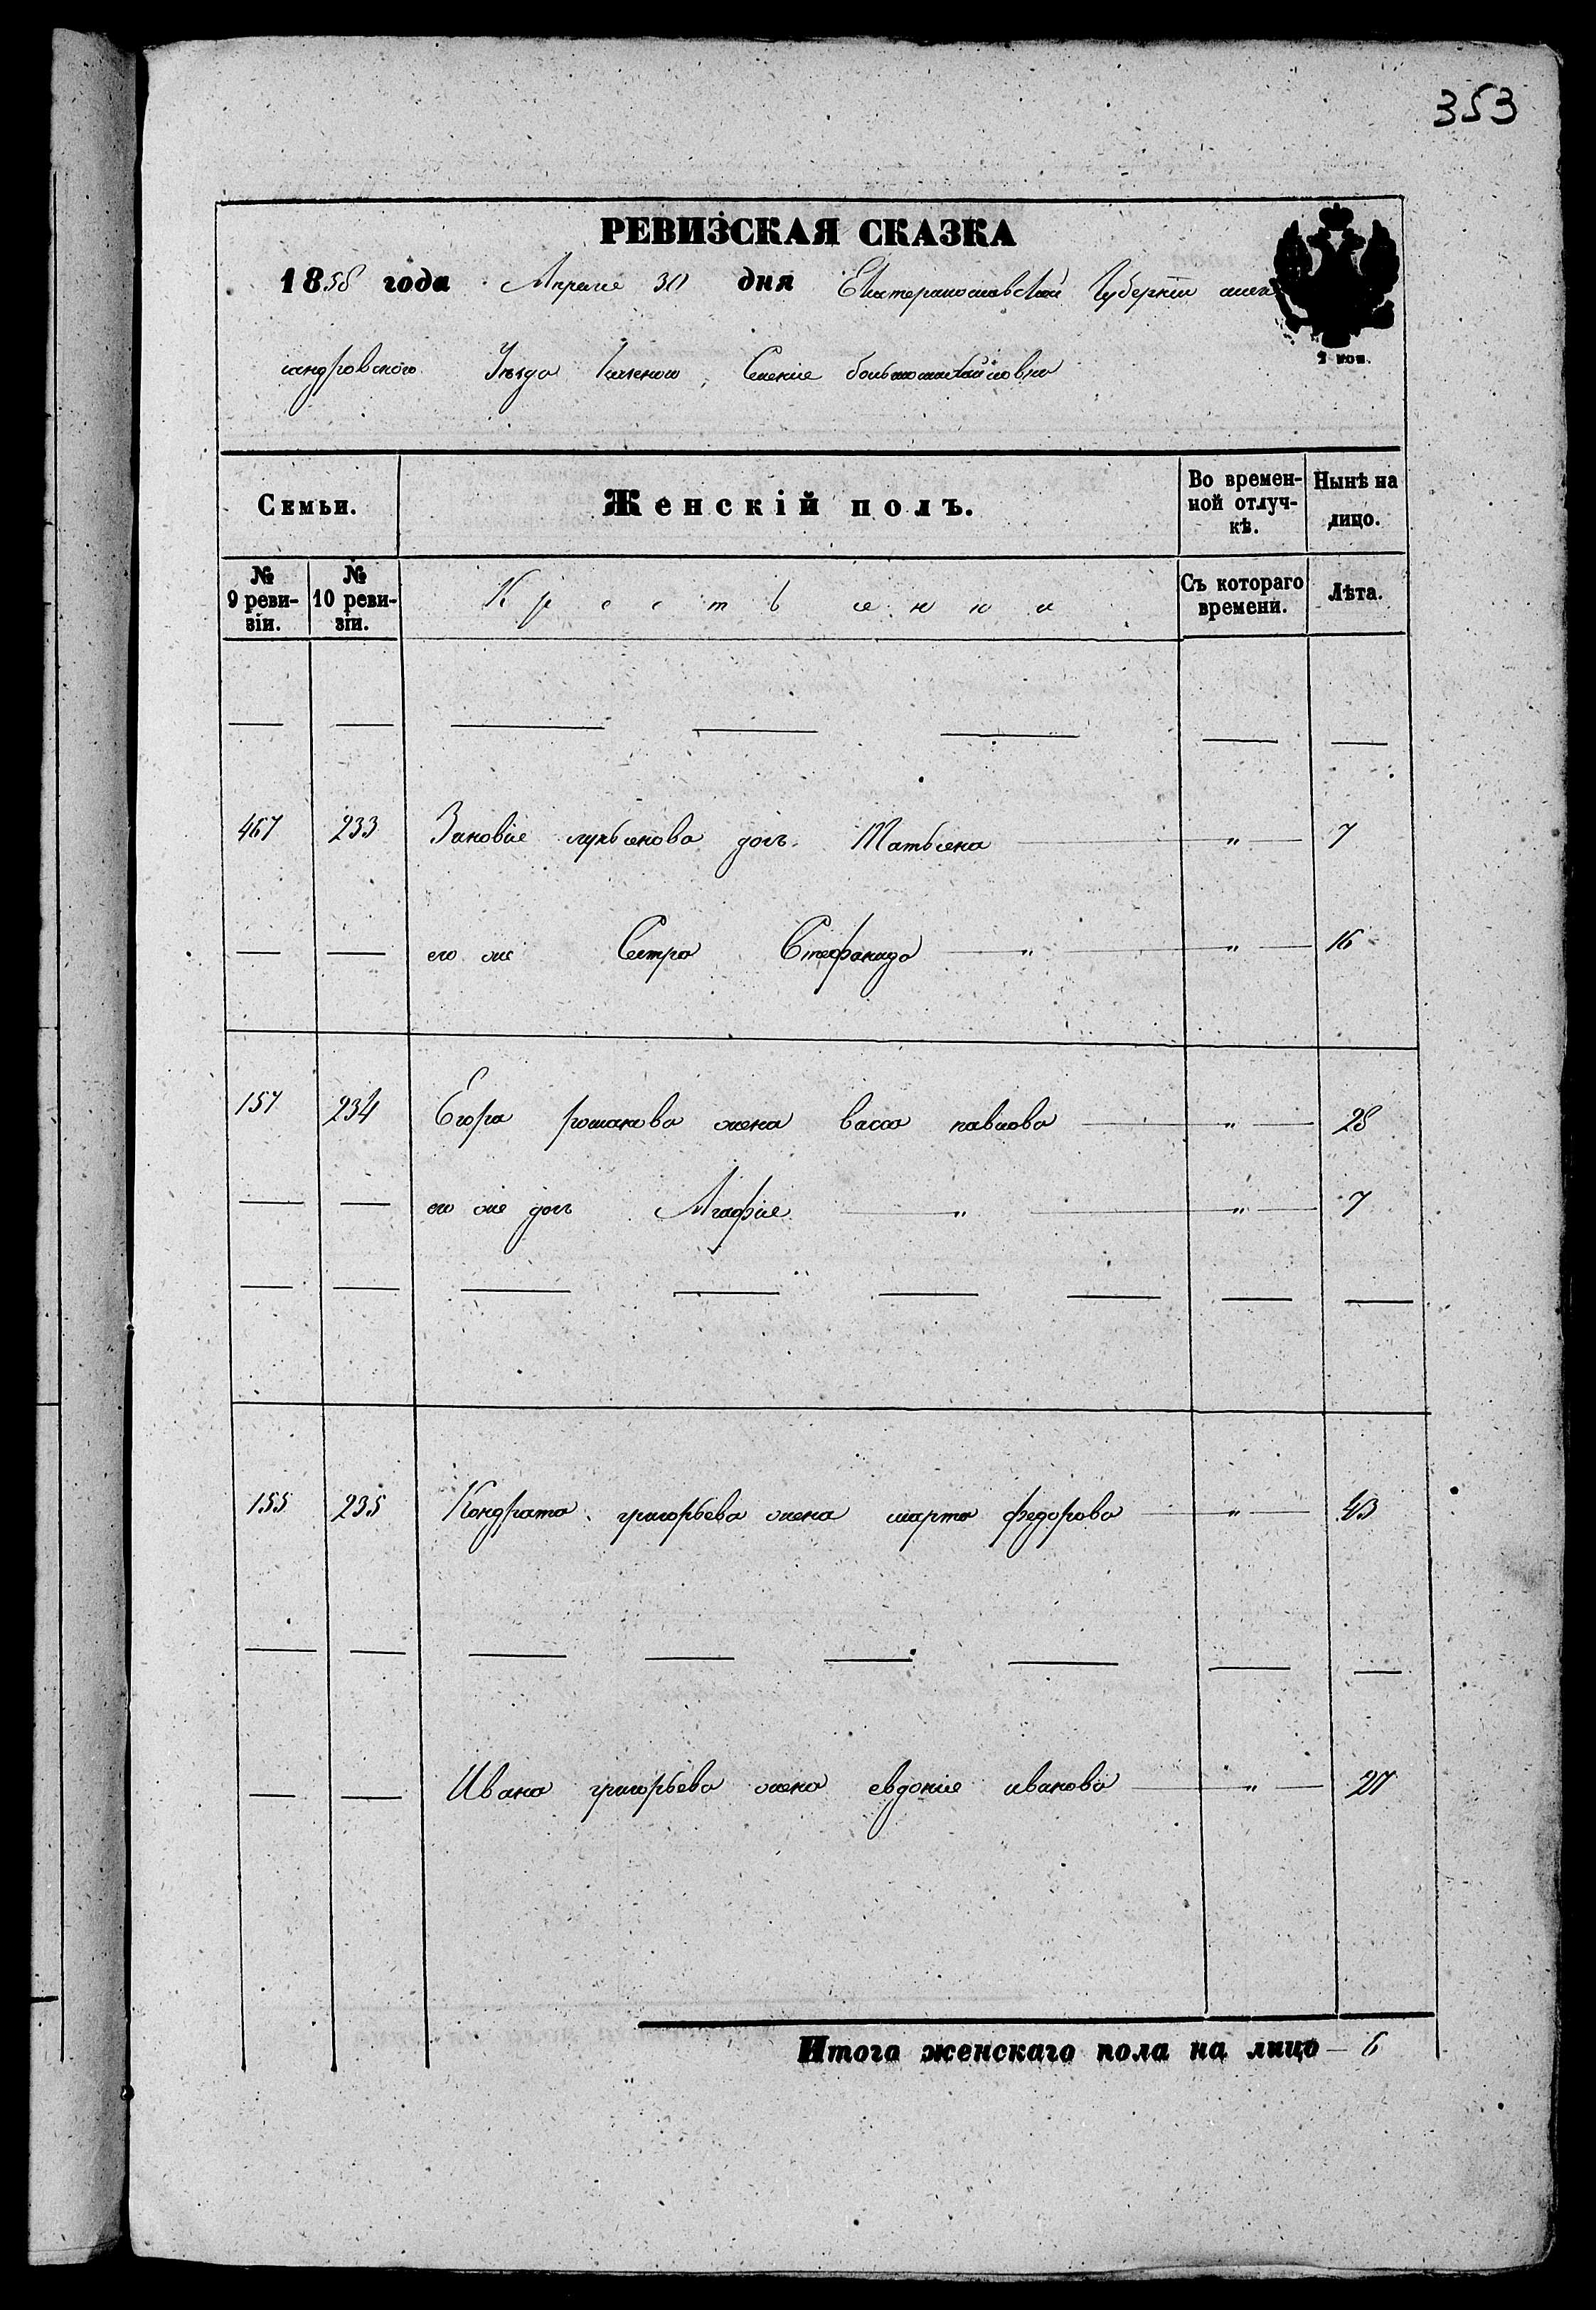 353
РЕВИЗСКАЯ СКАЗКА
1858 года Апреля 30 дня Екатеринославской Губернии алек
сандровского Уѣзда Селения большомихайловки
2 коп.
Семьи. Женскій полъ. Во времен-ной отлуч-кѣ. Нынѣ на лицо.
№ 9 реви-зіи. № 10 реви-зіи. Крестьянки Съ котораго времени. Лѣта.
— — — — — — —
467 233 Зиновія лукьянова доч. Матьяна — " — 7
— — его же Сестра Стефанида — " — " — 16
157 234 Егора романова жена васса павлова — " — 28
— — его же доч Агафія — " — " — 7
— — — — — — — —
155 235 Кондрата григорьева жена марта федорова — " — 43
— — — — — — — —
— — Ивана григорьева жена евдокия иванова — " — 27
Итого женскаго пола на лицо — 6